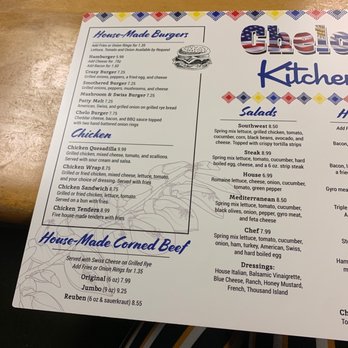 House-Made Burgers
Add Fries or Onion Rings for 1.35
Lettuce, Tomato and Onion Available by Request
Hamburger 5.99
Add Cheese for .10¢
Add Bacon for 1.50
Crazy Burger 7.25
Grilled onions, peppers, a fried egg, and cheese
Smothered Burger 7.25
Grilled onions, peppers, mushrooms, and cheese
Mushroom & Swiss Burger 7.25
Patty Melt 7.25
American, Swiss, and grilled onion on grilled rye bread
Chelo Burger 7.75
Cheddar cheese, bacon, and BBQ sauce topped
with two hand battered onion rings
Chicken
Chicken Quesadilla 9.99
Grilled chicken, mixed cheese, tomato, and scallions.
Served with sour cream and salsa.
Chicken Wrap 8.75
Grilled or fried chicken, mixed cheese, lettuce, tomato,
and your choice of dressing. Served with fries
Chicken Sandwich 8.75
Grilled or fried chicken, mixed cheese, lettuce, tomato.
Served on a bun with fries.
Chicken Tenders 8.99
Five house-made tenders with fries
House-Made Corned Beef
Served with Swiss Cheese on Grilled Rye
Add Fries or Onion Rings for 1.35
Original (6 oz) 7.99
Jumbo (9 oz) 9.25
Reuben (6 oz & sauerkraut) 8.55
Chelo
Kitchen
Salads
Southwest 8.50
Spring mix lettuce, grilled chicken, tomato,
cucumber, corn, black beans, avocado, and
cheese. Topped with crispy tortilla strips
Steak 9.99
Spring mix lettuce, tomato, cucumber, hard
boiled egg, cheese, and a 6 oz. strip steak
House 6.99
Romaine lettuce, cheese, onion, cucumber,
tomato, green pepper
Mediterranean 8.50
Spring mix lettuce, tomato, cucumber,
black olives, onion, pepper, gyro meat,
and feta cheese
Chef 7.99
Spring mix lettuce, tomato, cucumber,
onion, ham, turkey, American, Swiss,
and hard boiled egg
Dressings:
House Italian, Balsamic Vinaigrette,
Blue Cheese, Ranch, Honey Mustard,
French, Thousand Island